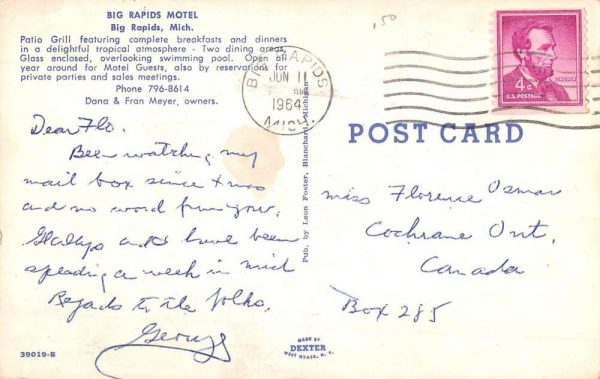 BIG RAPIDS MOTEL
Big Rapids, Mich.
Patio Grill featuring complete breakfasts and dinners
in a delightful tropical atmosphere - Two dining areas,
Glass enclosed, overlooking swimming pool. Open all
year around for Motel Guests, also by reservations for
private parties and sales meetings.
Phone 796-8614
Dana & Fran Meyer, owners.
.50
BIG RAPIDS
JUN 11
1964
MICH.
LINCOLN
4¢
U.S. POSTAGE
Dear Flo.
Been watching my
mail box since Xmas
and no word from you.
Gladys and I have been
spending a week in Mich
Regards to the folks.
George
Pub. by Leon Foster, Blanchard, Michigan
POST CARD
Miss Florence Osman
Cochrane Ont.
Canada
Box 285
39019-B
MADE BY
DEXTER
WEST NYACK, N. Y.